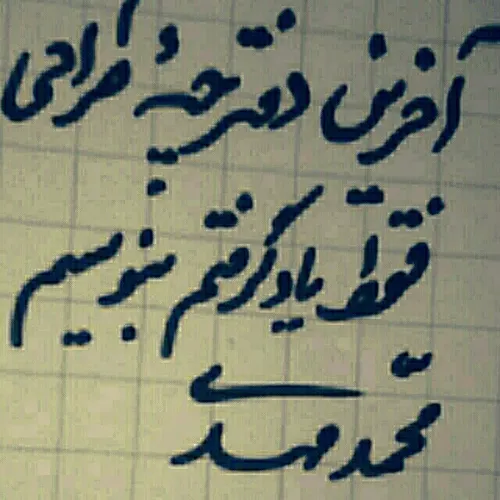 آخرین دفترچهٔ طراحی
فقط یاد گرفتم بنویسم
محمد مهدی